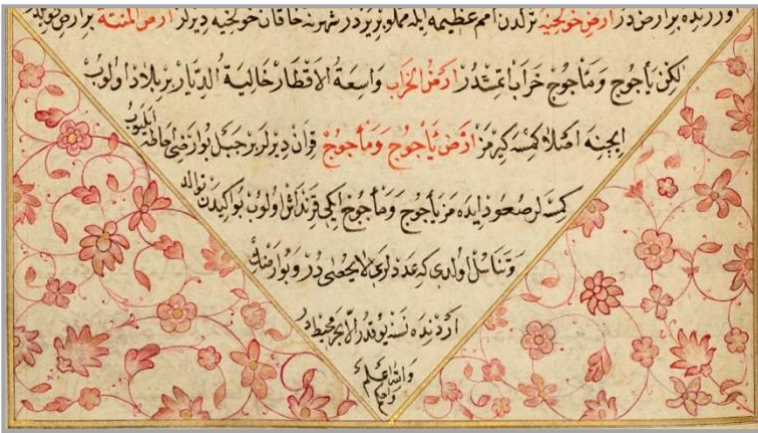 اوزرنده بر ارض در ارض خولخیه ترلدن امم عظیمه ایله مملو بر یردر شهرنه خاقان خولخیه دیرلر ارض المنتنة بر ارض
لکن یأجوج ومأجوج خراب اتمشدر ارض الخراب واسعة الاقطار خالیة الدیار بر بلاد اولوب
ایچنه اصلا کمسه کیرمز ارض یأجوج ومأجوج قران دیرلر بر جبل بو ارضی احاطه ایلیوب
کمسه لر صعود ایده مز یأجوج ومأجوج ایکی قرنداش اولوب بو ایکیدن توالد
وتناسل اولدی که عددلری لا یحصی در و بو ارضك
اردنده نسنه یوقدر الا بحر محیطدر
والله اعلم
واحکم